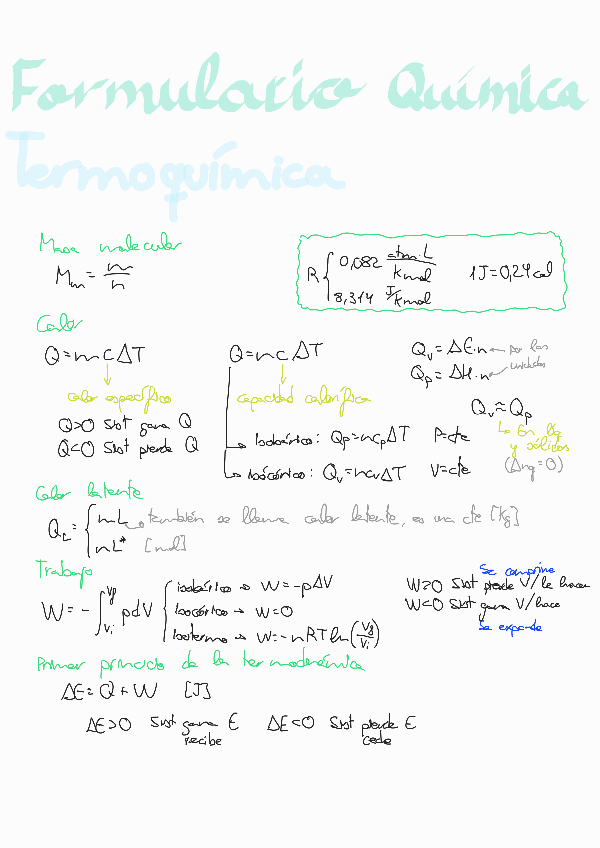 Formulario Química
Termoquímica
Masa molecular
Mm = m/n
R { 0,082 atm·L/K mol
8,314 J/K mol
1J = 0,24 cal
Calor
Q = m c ΔT
calor específico
Q>0 Sist gana Q
Q<0 Sist pierde Q
Q = n c ΔT
capacidad calorífica
Isobárico: Qp = ncpΔT P=cte
Isocórico: Qv = ncvΔT V=cte
Qv = ΔE·n ← por las
Qp = ΔH·n ← unidades
Qv ≈ Qp
↳ En líq
y sólidos
(Δng = 0)
Calor latente
QL = { mL → también se llama calor latente, es una cte [Kg]
nL* [mol]
Trabajo
W = - ∫ Vi Vf pdV
isobárico → W = -pΔV
Isocórico → W = 0
Isotermo → W = -nRT ln(Vf/Vi)
Se comprime
W>0 Sist pierde V/le hacen
W<0 Sist gana V/hace
Se expande
Primer principio de la termodinámica
ΔE = Q + W [J]
ΔE>0 Sist gana E ΔE<0 Sist pierde E
recibe cede